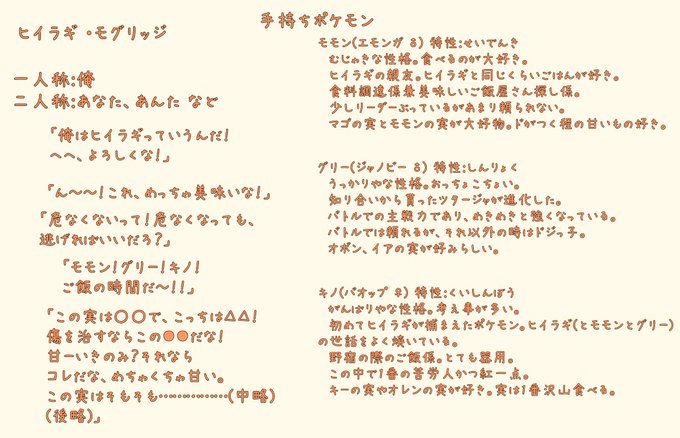 ヒイラギ・モグリッジ
一人称:俺
二人称:あなた、あんた など
「俺はヒイラギっていうんだ!
へへ、よろしくな!」
「ん〜〜!これ、めっちゃ美味いな!」
「危なくないって!危なくなっても、
逃げればいいだろ?」
「モモン!グリー!キノ!
ご飯の時間だ〜!!」
「この実は〇〇で、こっちは△△!
傷を治すならこの●●だな!
甘ーいきのみ?それなら
コレだな、めちゃくちゃ甘い。
この実はそもそも……………(中略)
(後略)」
手持ちポケモン
モモン(エモンガ ♂) 特性:せいでんき
むじゃきな性格。食べるのが大好き。
ヒイラギの親友。ヒイラギと同じくらいごはんが好き。
食料調達係兼美味しいご飯屋さん探し係。
少しリーダーぶっているがあまり頼られない。
マゴの実とモモンの実が大好物。ドがつく程の甘いもの好き。
グリー(ジャノビー ♂) 特性:しんりょく
うっかりやな性格。おっちょこちょい。
知り合いから貰ったツタージャが進化した。
バトルでの主戦力であり、めきめきと強くなっている。
バトルでは頼れるが、それ以外の時はドジっ子。
オボン、イアの実が好みらしい。
キノ(バオップ ♀) 特性:くいしんぼう
がんばりやな性格。考え事が多い。
初めてヒイラギが捕まえたポケモン。ヒイラギ(とモモンとグリー)
の世話をよく焼いている。
野宿の際のご飯係。とても器用。
この中で1番の苦労人かつ紅一点。
キーの実やオレンの実が好き。実は1番沢山食べる。